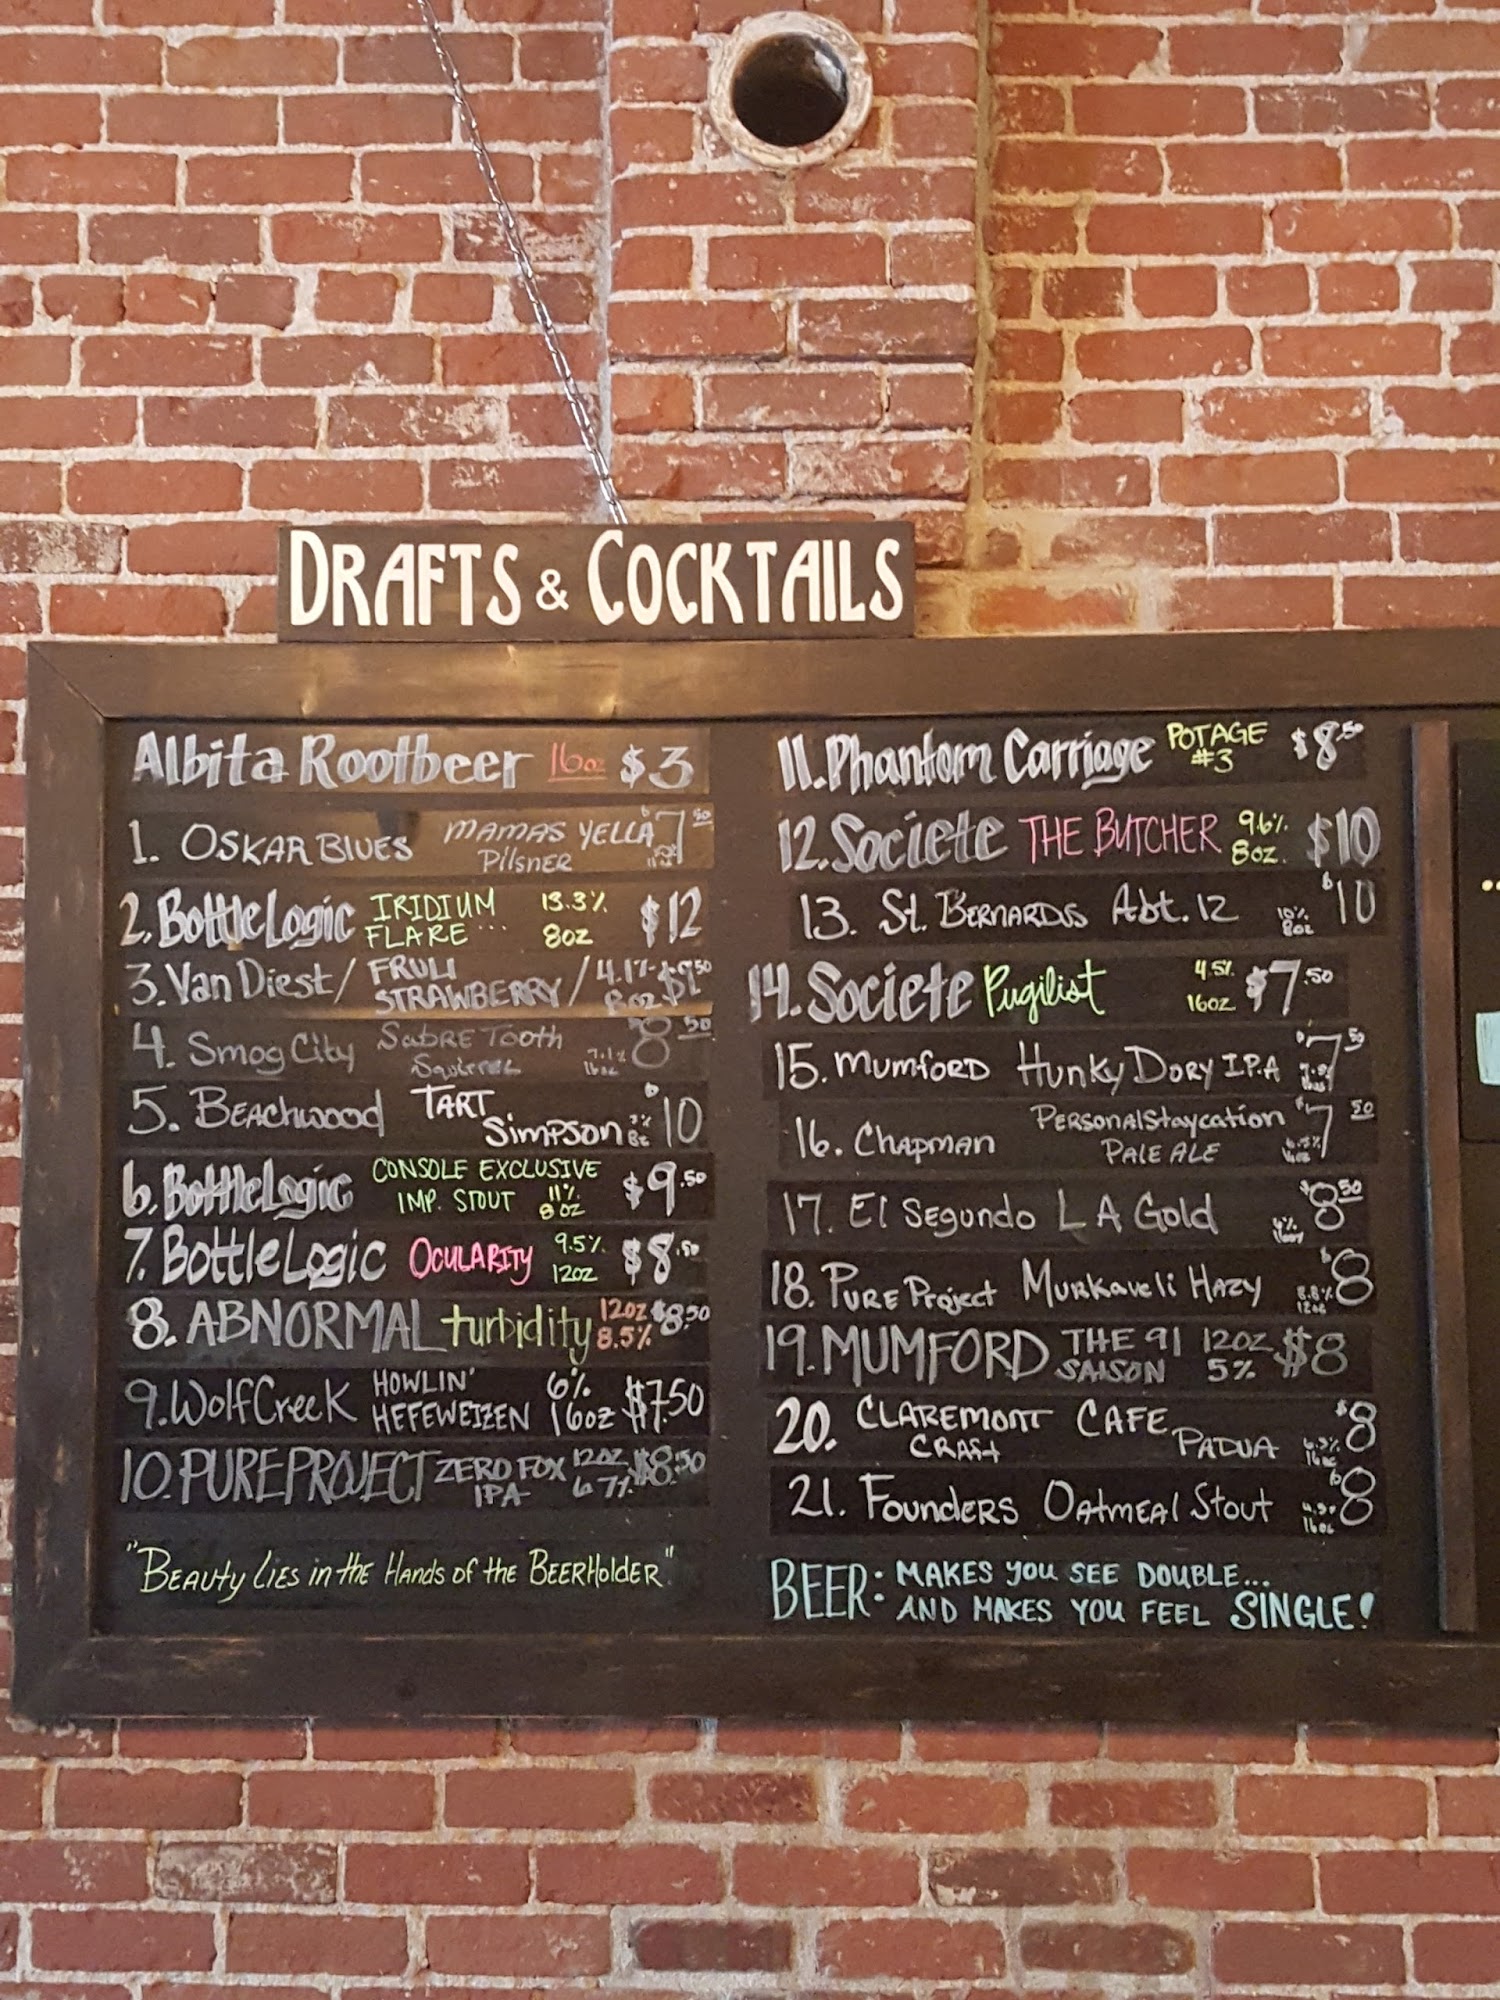 DRAFTS & COCKTAILS
Albita Rootbeer 16oz $3
1. OSKAR BLUES MAMAS YELLA $7.50
PILSNER
2. BottleLogic IRIDIUM 13.3% $12
FLARE... 8oz
3. Van Diest / FRULI / 4.1%
STRAWBERRY 8oz
4. Smog City SABRE TOOTH $8.50
7.1% 16oz
5. BEACHWOOD TART $10
SIMPSON
6. BottleLogic CONSOLE EXCLUSIVE $9.50
IMP. STOUT 11% 8oz
7. BottleLogic OCULARITY 9.5% $8.50
12oz
8. ABNORMAL turbidity 12oz $8.50
8.5%
9. WolfCreek HOWLIN' 6% $7.50
HEFEWEIZEN 16oz
10. PURE PROJECT ZERO FOX 12oz $8.50
IPA 6.7%
"BEAUTY LIES in the Hands of the BEERHOLDER"
11. Phantom Carriage POTAGE $8.50
#3
12. Societe THE BUTCHER 9.6% $10
8oz.
13. St. BERNARDUS Abt. 12 10% $10
8oz
14. Societe Pugilist 4.5% $7.50
16oz
15. MUMFORD HUNKY DORY I.P.A $7.50
16. CHAPMAN PERSONAL Staycation $7.50
PALE ALE
17. El Segundo L A Gold $8.50
18. PURE Project MURKAVELI HAZY 8.8% $8
12oz
19. MUMFORD THE 91 12oz $8
SAISON 5%
20. CLAREMONT CAFE PADUA $8
CRAFT 16oz
21. FOUNDERS OATMEAL STOUT $8
16oz
BEER: MAKES YOU SEE DOUBLE...
AND MAKES YOU FEEL SINGLE!